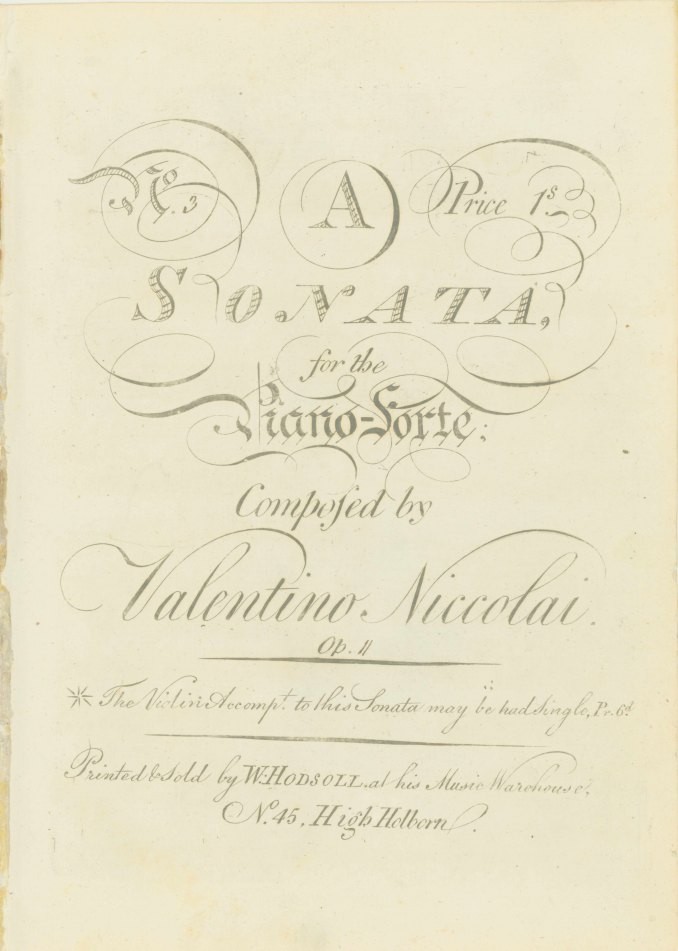 No. 3
A
Price 1s
SONATA,
for the
Piano-Forte;
Compoſed by
Valentino Niccolai.
Op. 11
The Violin Accompt. to this Sonata may be had Single, Pr. 6d
Printed & Sold by W: HODSOLL, at his Music Warehouse,
No. 45, High Holborn.